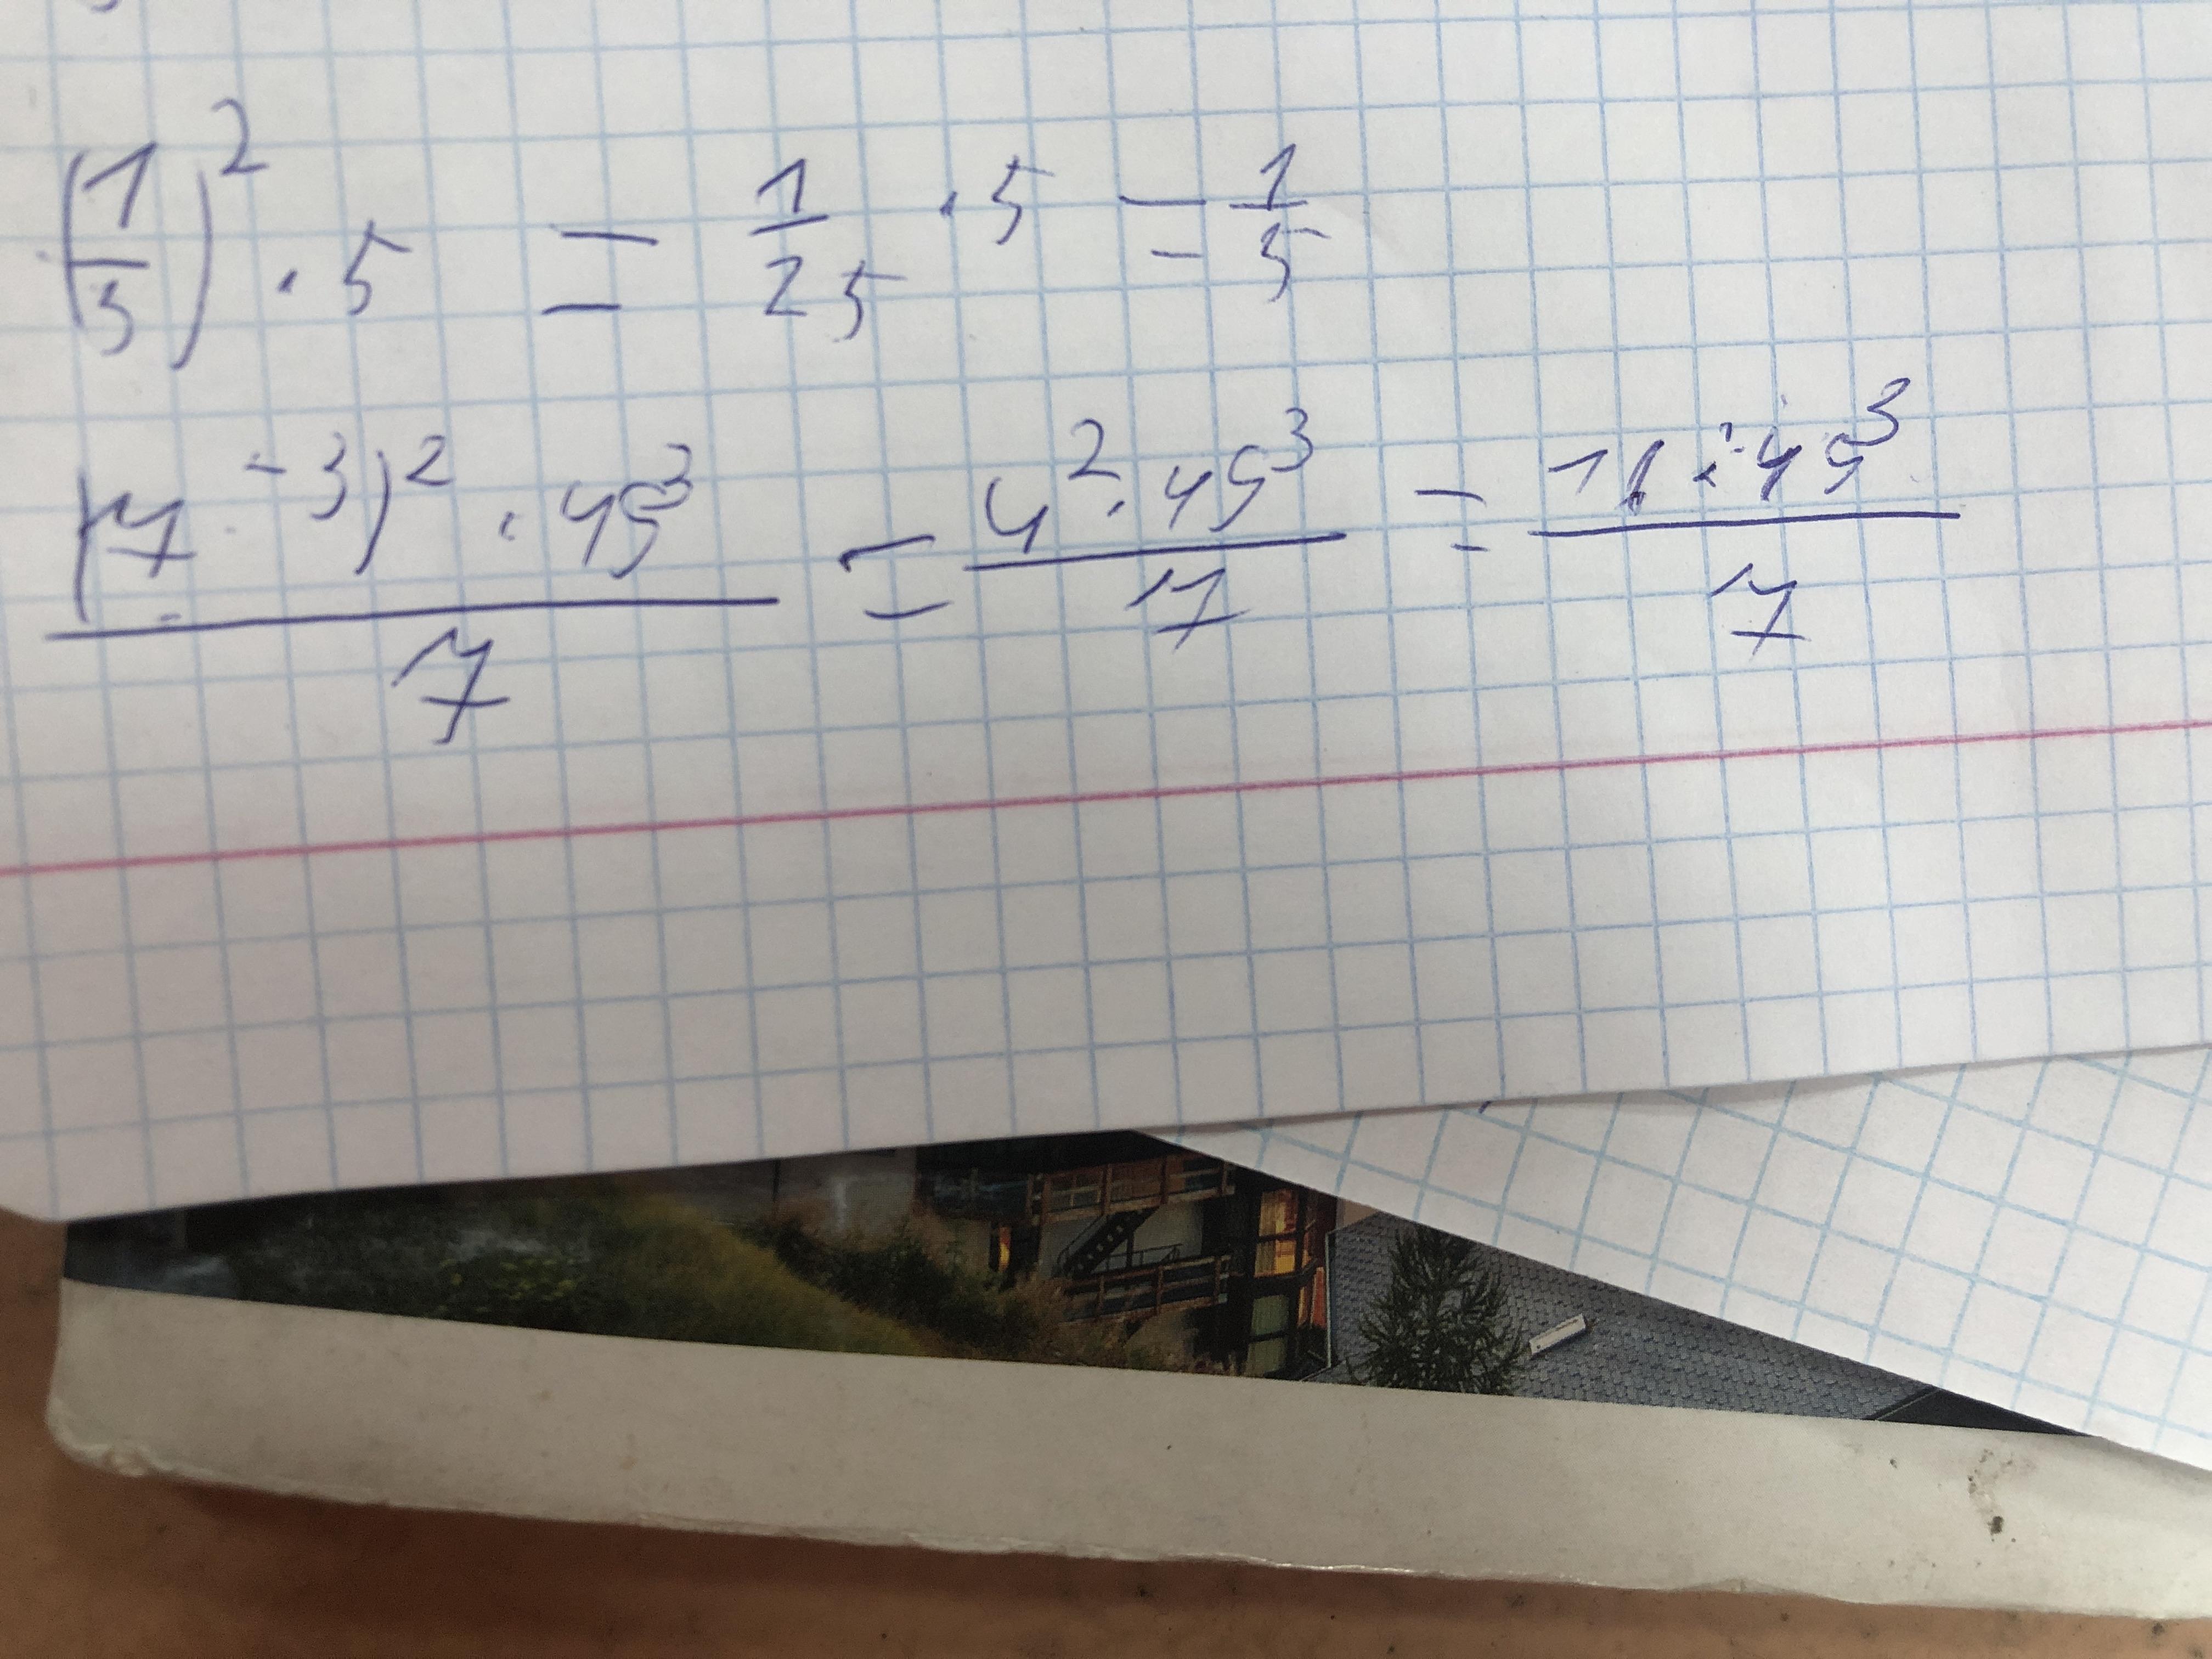 (1/5)² · 5 = 1/25 · 5 = 1/5
((7 - 3)² · 45³)/7 = (4² · 45³)/7 = (16 · 45³)/7